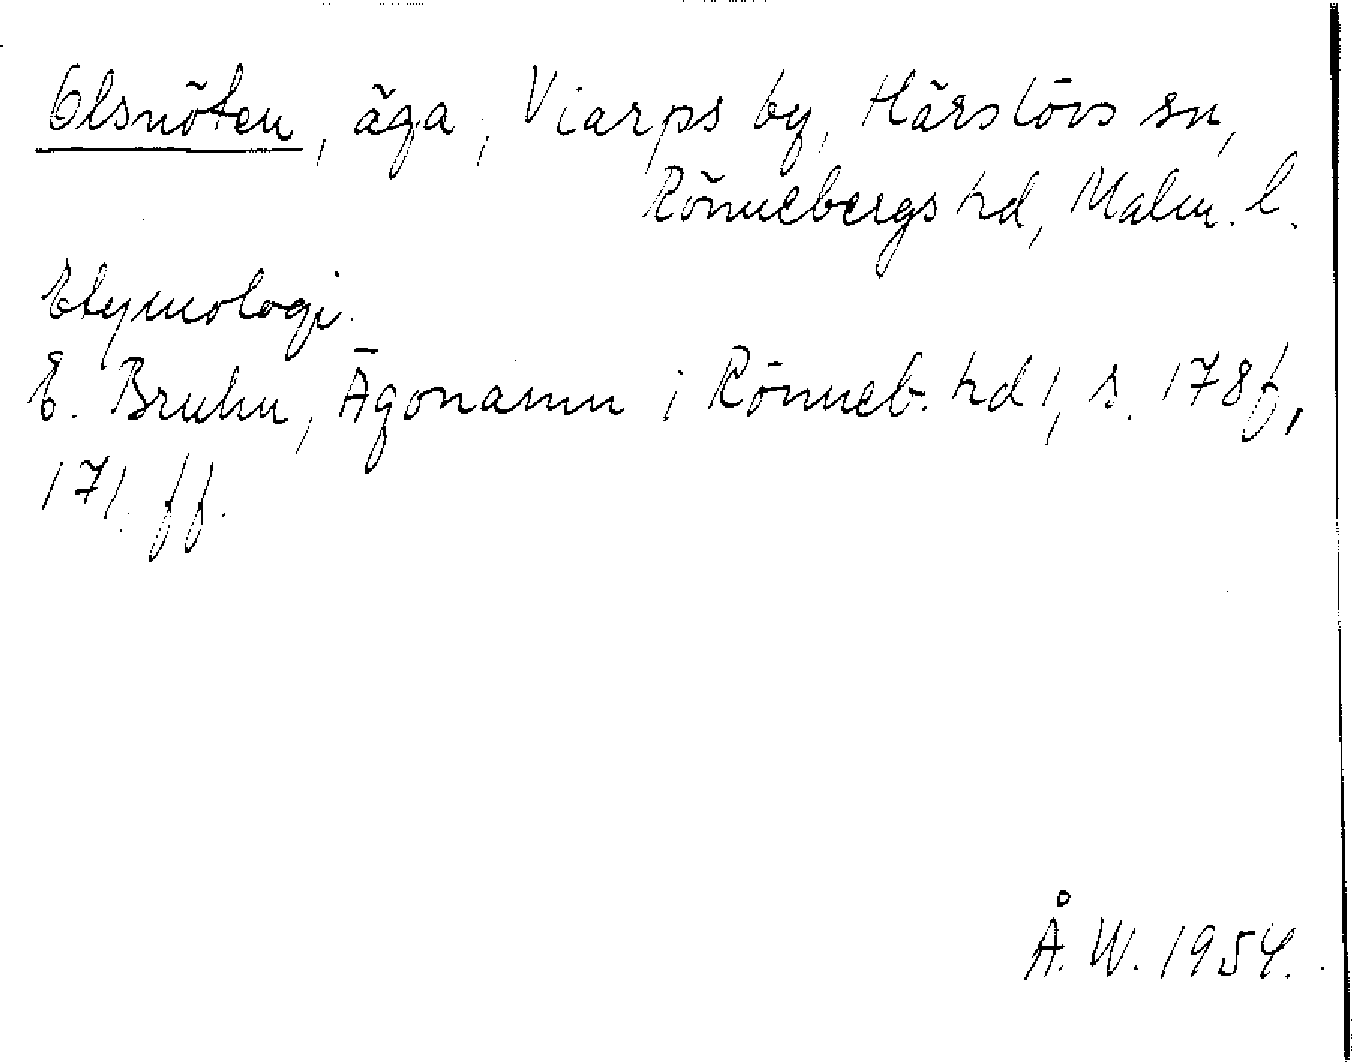 Olsnöten, äga, Viarps by, Härslövs sn,
Rönnebergs hd, Malm. l.
Etymologi.
E. Bruhn, Ägonamn i Rönneb. hd 1, s. 178f,
171 ff.
Å. W. 1954.